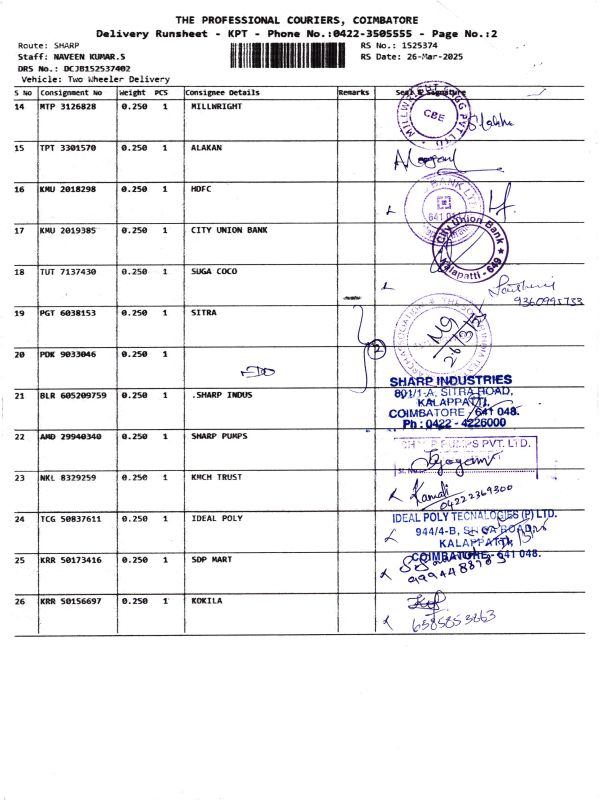 THE PROFESSIONAL COURIERS, COIMBATORE
Delivery Runsheet - KPT - Phone No.:0422-3505555 - Page No.:2
Route: SHARP RS No.: 1525374
Staff: NAVEEN KUMAR.S RS Date: 26-Mar-2025
DRS No.: DCJB152537402
Vehicle: Two Wheeler Delivery
S No Consignment No Weight PCS Consignee Details Remarks Seal & Signature
14 MTP 3126828 0.250 1 MILLWRIGHT
CBE
15 TPT 3301570 0.250 1 ALAKAN
16 KMU 2018298 0.250 1 HDFC
BANK LTD
17 KMU 2019385 0.250 1 CITY UNION BANK
City Union Bank
Kalapatti - 649
18 TUT 7137430 0.250 1 SUGA COCO
9360995733
19 PGT 6038153 0.250 1 SITRA
26/3/25
20 PDK 9033046 0.250 1
2
21 BLR 605209759 0.250 1 .SHARP INDUS
SHARP INDUSTRIES
801/1-A, SITRA ROAD,
KALAPPATTI,
COIMBATORE - 641 048.
Ph : 0422 - 4226000
22 AMD 29940340 0.250 1 SHARP PUMPS
SHARP PUMPS PVT. LTD.
23 NKL 8329259 0.250 1 KMCH TRUST
04222369300
24 TCG 50837611 0.250 1 IDEAL POLY
IDEAL POLY TECNALOGIES (P) LTD.
944/4-B, SITRA ROAD,
KALAPPATTI,
COIMBATORE - 641 048.
25 KRR 50173416 0.250 1 SDP MART
26 KRR 50156697 0.250 1 KOKILA